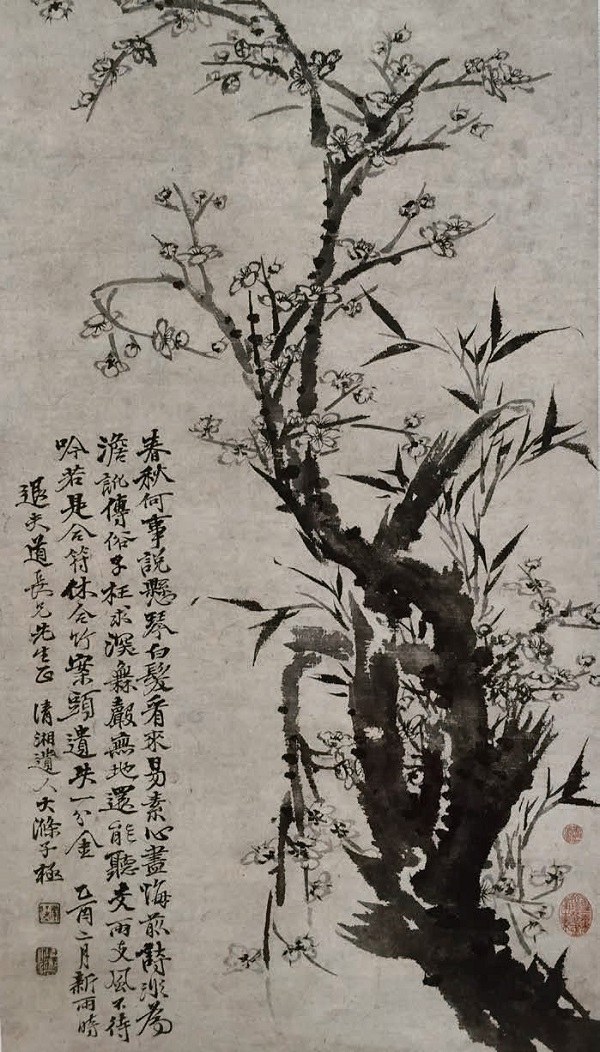 春秋何事說懸琴白髮看來易素心盡悔前詩非為
澹訛傳俗子枉求深橆聲無地還能聽交雨交風不待
吟若是合符休合竹案頭遺失一分金 乙酉二月新雨時
退夫道長兄先生正 清湘遺人大滌子極